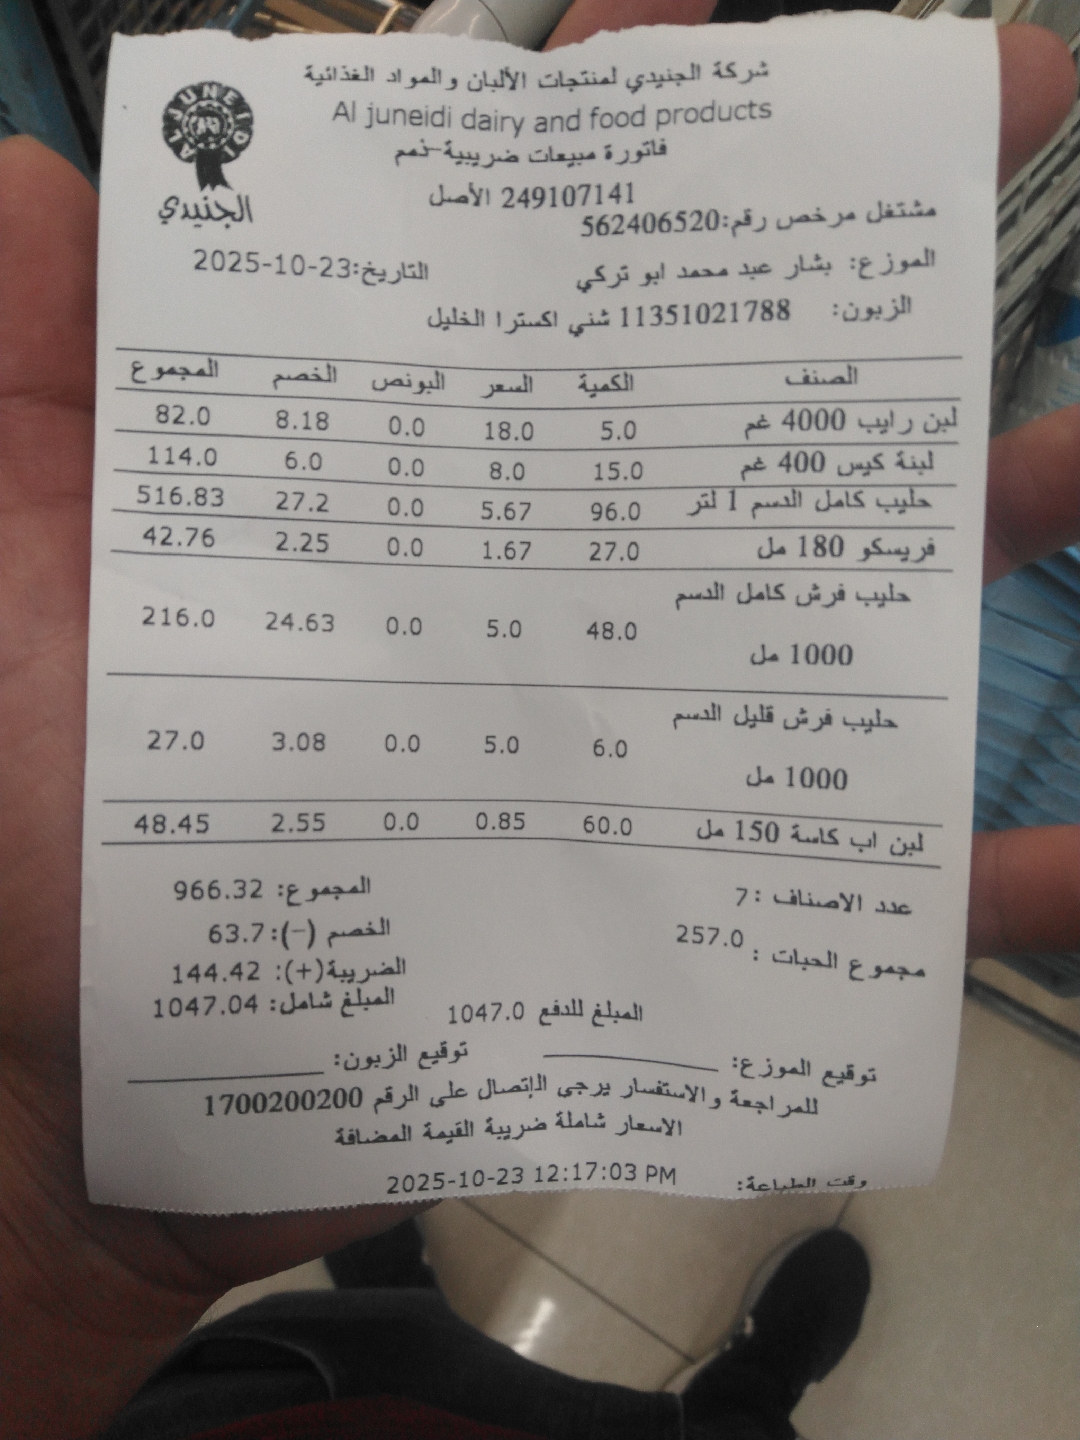 شركة الجنيدي لمنتجات الألبان والمواد الغذائية
Al juneidi dairy and food products
AL JUNEIDI
الجنيدي
فاتورة مبيعات ضريبية-ذمم
249107141 الأصل
مشتغل مرخص رقم:562406520
الموزع: بشار عبد محمد ابو تركي التاريخ:2025-10-23
الزبون: 11351021788 شني اكسترا الخليل
الصنف الكمية السعر البونص الخصم المجموع
لبن رايب 4000 غم 5.0 18.0 0.0 8.18 82.0
لبنة كيس 400 غم 15.0 8.0 0.0 6.0 114.0
حليب كامل الدسم 1 لتر 96.0 5.67 0.0 27.2 516.83
فريسكو 180 مل 27.0 1.67 0.0 2.25 42.76
حليب فرش كامل الدسم
1000 مل 48.0 5.0 0.0 24.63 216.0
حليب فرش قليل الدسم
1000 مل 6.0 5.0 0.0 3.08 27.0
لبن اب كاسة 150 مل 60.0 0.85 0.0 2.55 48.45
عدد الاصناف :7 المجموع: 966.32
مجموع الحبات : 257.0 الخصم (-):63.7
الضريبة(+): 144.42
المبلغ للدفع 1047.0 المبلغ شامل: 1047.04
توقيع الموزع: توقيع الزبون:
للمراجعة والاستفسار يرجى الإتصال على الرقم 1700200200
الاسعار شاملة ضريبة القيمة المضافة
وقت الطباعة: 2025-10-23 12:17:03 PM